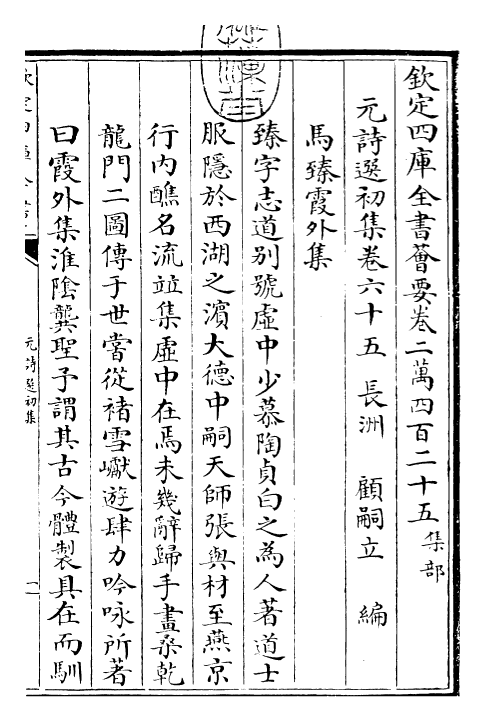 欽定四庫全書薈要卷二萬四百二十五 集部
元詩選初集卷六十五 長洲 顧嗣立 編
馬臻霞外集
臻字志道别號虛中少慕陶貞白之為人著道士
服隱於西湖之濵大德中嗣天師張與材至燕京
行内醮名流並集虛中在焉未幾辭歸手畫桑乾
龍門二圖傳于世嘗從褚雪巘遊肆力吟咏所著
曰霞外集淮陰龔聖予謂其古今體製具在而馴
元詩選初集